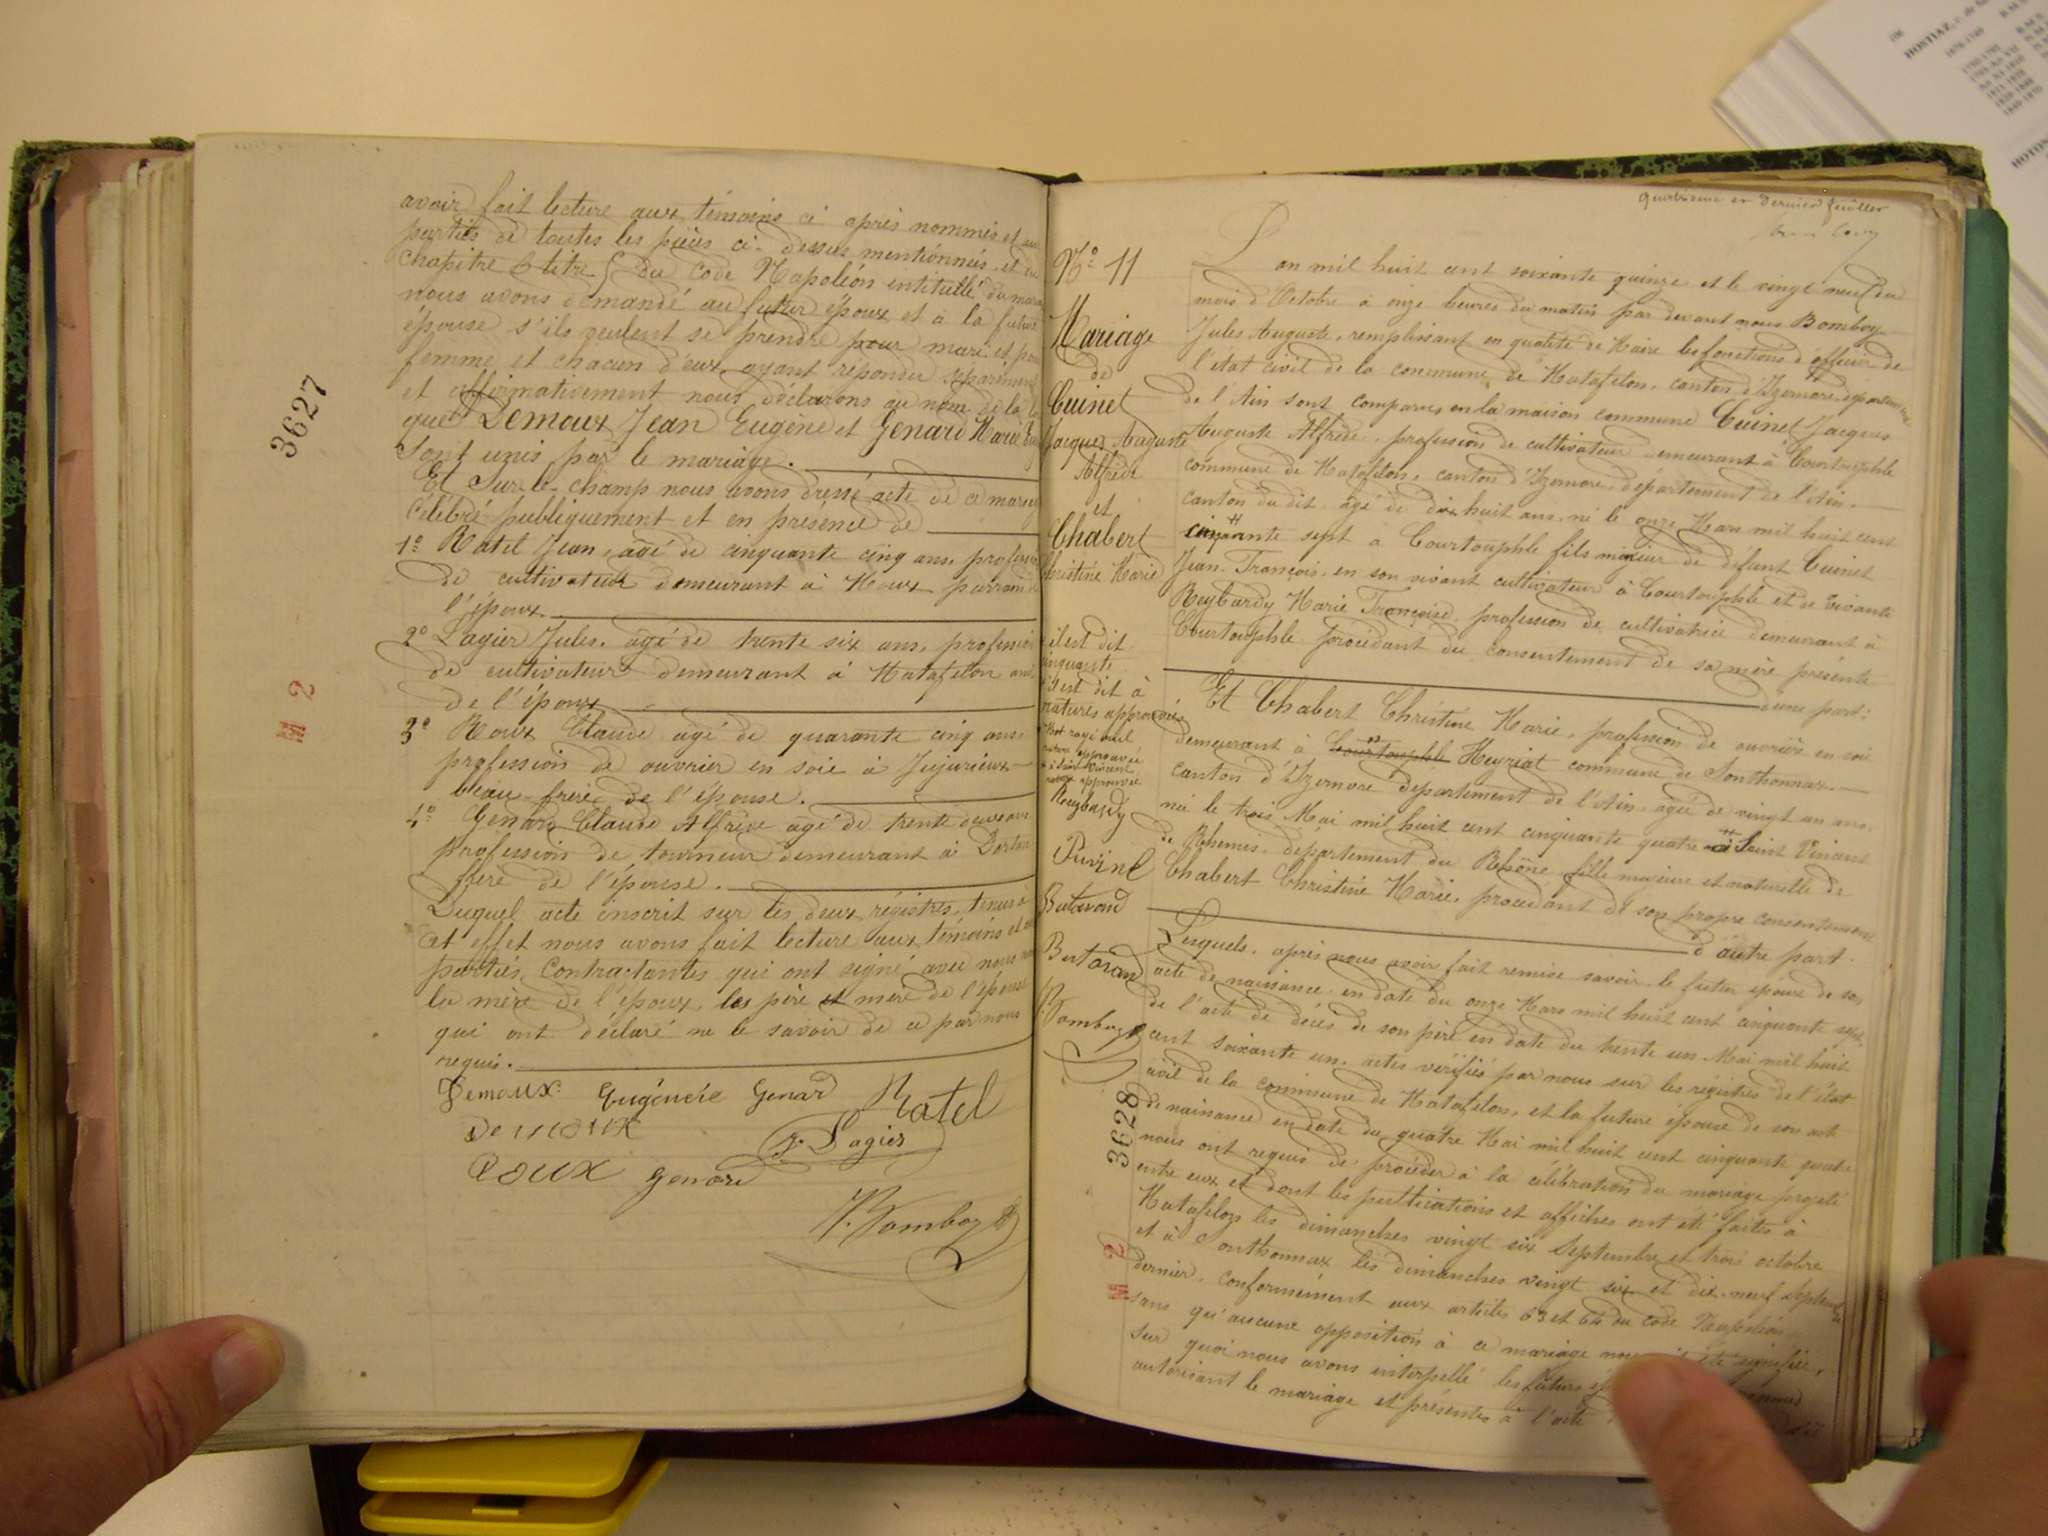 avoir fait lecture aux témoins ci après nommés et aux
parties de toutes les pièces ci-dessus mentionnées et du
chapitre 6 titre 5 du code Napoléon intitullé du maria
nous avons demandé au futur époux et à la future
épouse s'ils veulent se prendre pour mari et pour
femme et chacun d'eux ayant répondu séparément
et affirmativement nous déclarons au nom de la loi
que Demoux Jean Eugène et Genard Marie
Sont unis par le mariage.
Et Sur le champ nous avons dressé acte de ce mariage
Célébré publiquement et en présence de
1º Ratel Jean, agé de cinquante cinq ans, profession
de cultivateur demeurant à Houx parrain de
l'époux
2º Lagier Jules, agé de trente six ans, profession
de cultivateur demeurant à Matafelon ami
de l'époux
3º Roux Claude agé de quarante cinq ans
profession de ouvrier en soie à Jujurieux
beau-frère de l'épouse.
4º Genard Claude Alfrède agé de trente deux ans
profession de tourneur demeurant à Dortan
frère de l'épouse.
Duquel acte inscrit sur les deux régistres, tenus à
cet effet nous avons fait lecture aux témoins et aux
parties contractantes qui ont signé avec nous non
la mère de l'époux, les père et mère de l'épouse
qui ont déclaré ne le savoir de ce par nous
requis.
Demoux Eugénere Genard Ratel
Demoux J. Lagier
Roux Genard
Bomboy
3627
M 2
quatrième et Dernier feuillet
Nº 11
Mariage
de
Cuinet
Jacques Auguste
Alfrède
et
Chabert
Christine Marie
il est dit
cinquante
il est dit à
natures approuvées
Mot rayé nul
rature approuvée
Vincent
approuvée
Reybardy
Puvinel
Butavand
Bertorand
Bomboy
3628
M 2
L'an mil huit cent soixante quinze et le vingt neuf du
mois d'Octobre à onze heures du matin par devant nous Bomboy
Jules Auguste, remplissant en qualité de Maire les fonctions d'officier de
l'état civil de la commune de Matafelon, canton d'Izernore, département
de l'Ain sont comparus en la maison commune Cuinet Jacques
Auguste Alfrède, profession de cultivateur demeurant à Courtouphle
commune de Matafelon, canton d'Izernore, département de l'Ain,
canton du dit, agé de dix huit ans, né le onze Mars mil huit cent
cinquante sept à Courtouphle fils mineur de défunt Cuinet
Jean-François, en son vivant cultivateur à Courtouphle et de vivante
Reybardy Marie Françoise, profession de cultivatrice demeurant à
Courtouphle procédant du consentement de sa mère présente
d'une part:
Et Chabert Christine Marie, profession de ouvrière en soie
demeurant à Courtouphle Heyriat commune de Sonthonnax
canton d'Izernore département de l'Ain, agée de vingt un ans,
née le trois Mai mil huit cent cinquante quatre à Saint Vincent
de Rhemes, département du Rhône fille majeure et naturelle de
Chabert Christine Marie, procédant de son propre consentement
d'autre part.
Lesquels, après nous avoir fait remise savoir, le futur époux de son
acte de naissance en date du onze Mars mil huit cent cinquante sept,
de l'acte de décès de son père en date du trente un Mai mil huit
cent soixante un, actes vérifiés par nous sur les régistres de l'état
civil de la commune de Matafelon, et la future épouse de son acte
de naissance en date du quatre Mai mil huit cent cinquante quatre
nous ont requis de procéder à la célébration du mariage projeté
entre eux et dont les publications et affiches ont été faites à
Matafelon les dimanches vingt six Septembre et trois octobre
et à Sonthonnax les dimanches vingt six et dix-neuf Septembre
dernier, conformément aux articles 63 et 64 du code Napoléon,
sans qu'aucune opposition à ce mariage nous ait été signifiée,
sur quoi nous avons interpellé les futurs
autorisant le mariage et présentes à l'acte
HOSTIAZ
HOTON